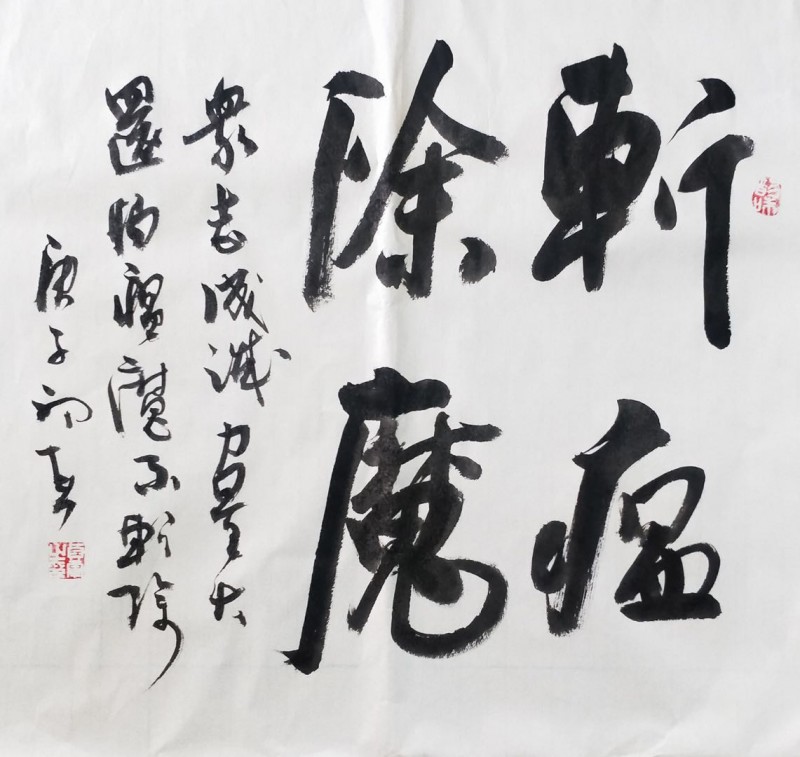 斬瘟
除魔
衆志成城力量大
還怕瘟魔不斬除
庚子初春